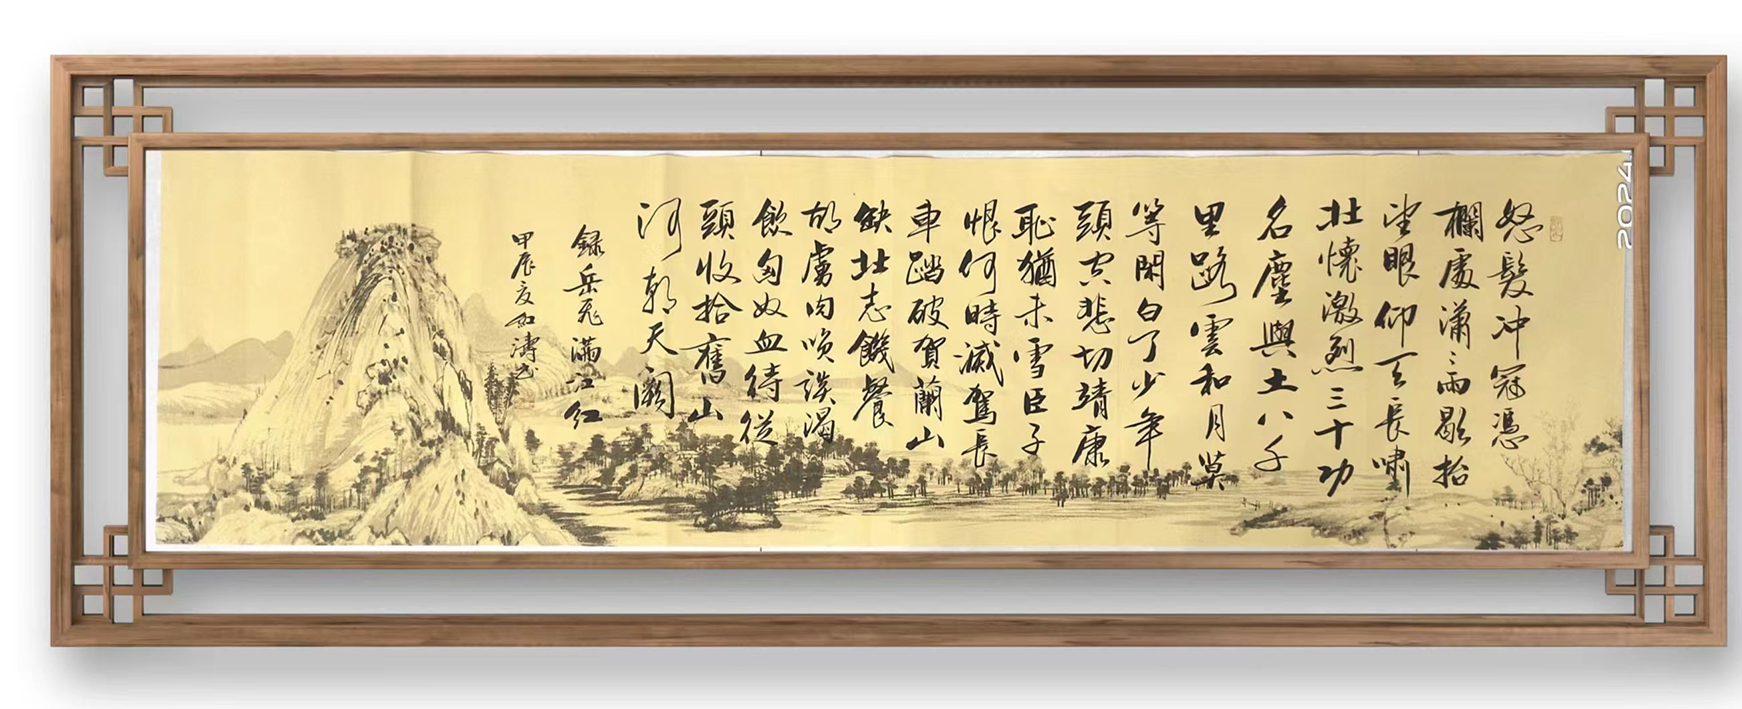 2024
怒髮冲冠憑
欄處瀟瀟雨歇抬
望眼仰天長嘯
壯懷激烈三十功
名塵與土八千
里路雲和月莫
等閑白了少年
頭空悲切靖康
恥猶未雪臣子
恨何時滅駕長
車踏破賀蘭山
缺壯志饑餐
胡虜肉咲談渴
飲匈奴血待從
頭收拾舊山
河朝天闕
録岳飛滿江紅
甲辰夏濤書